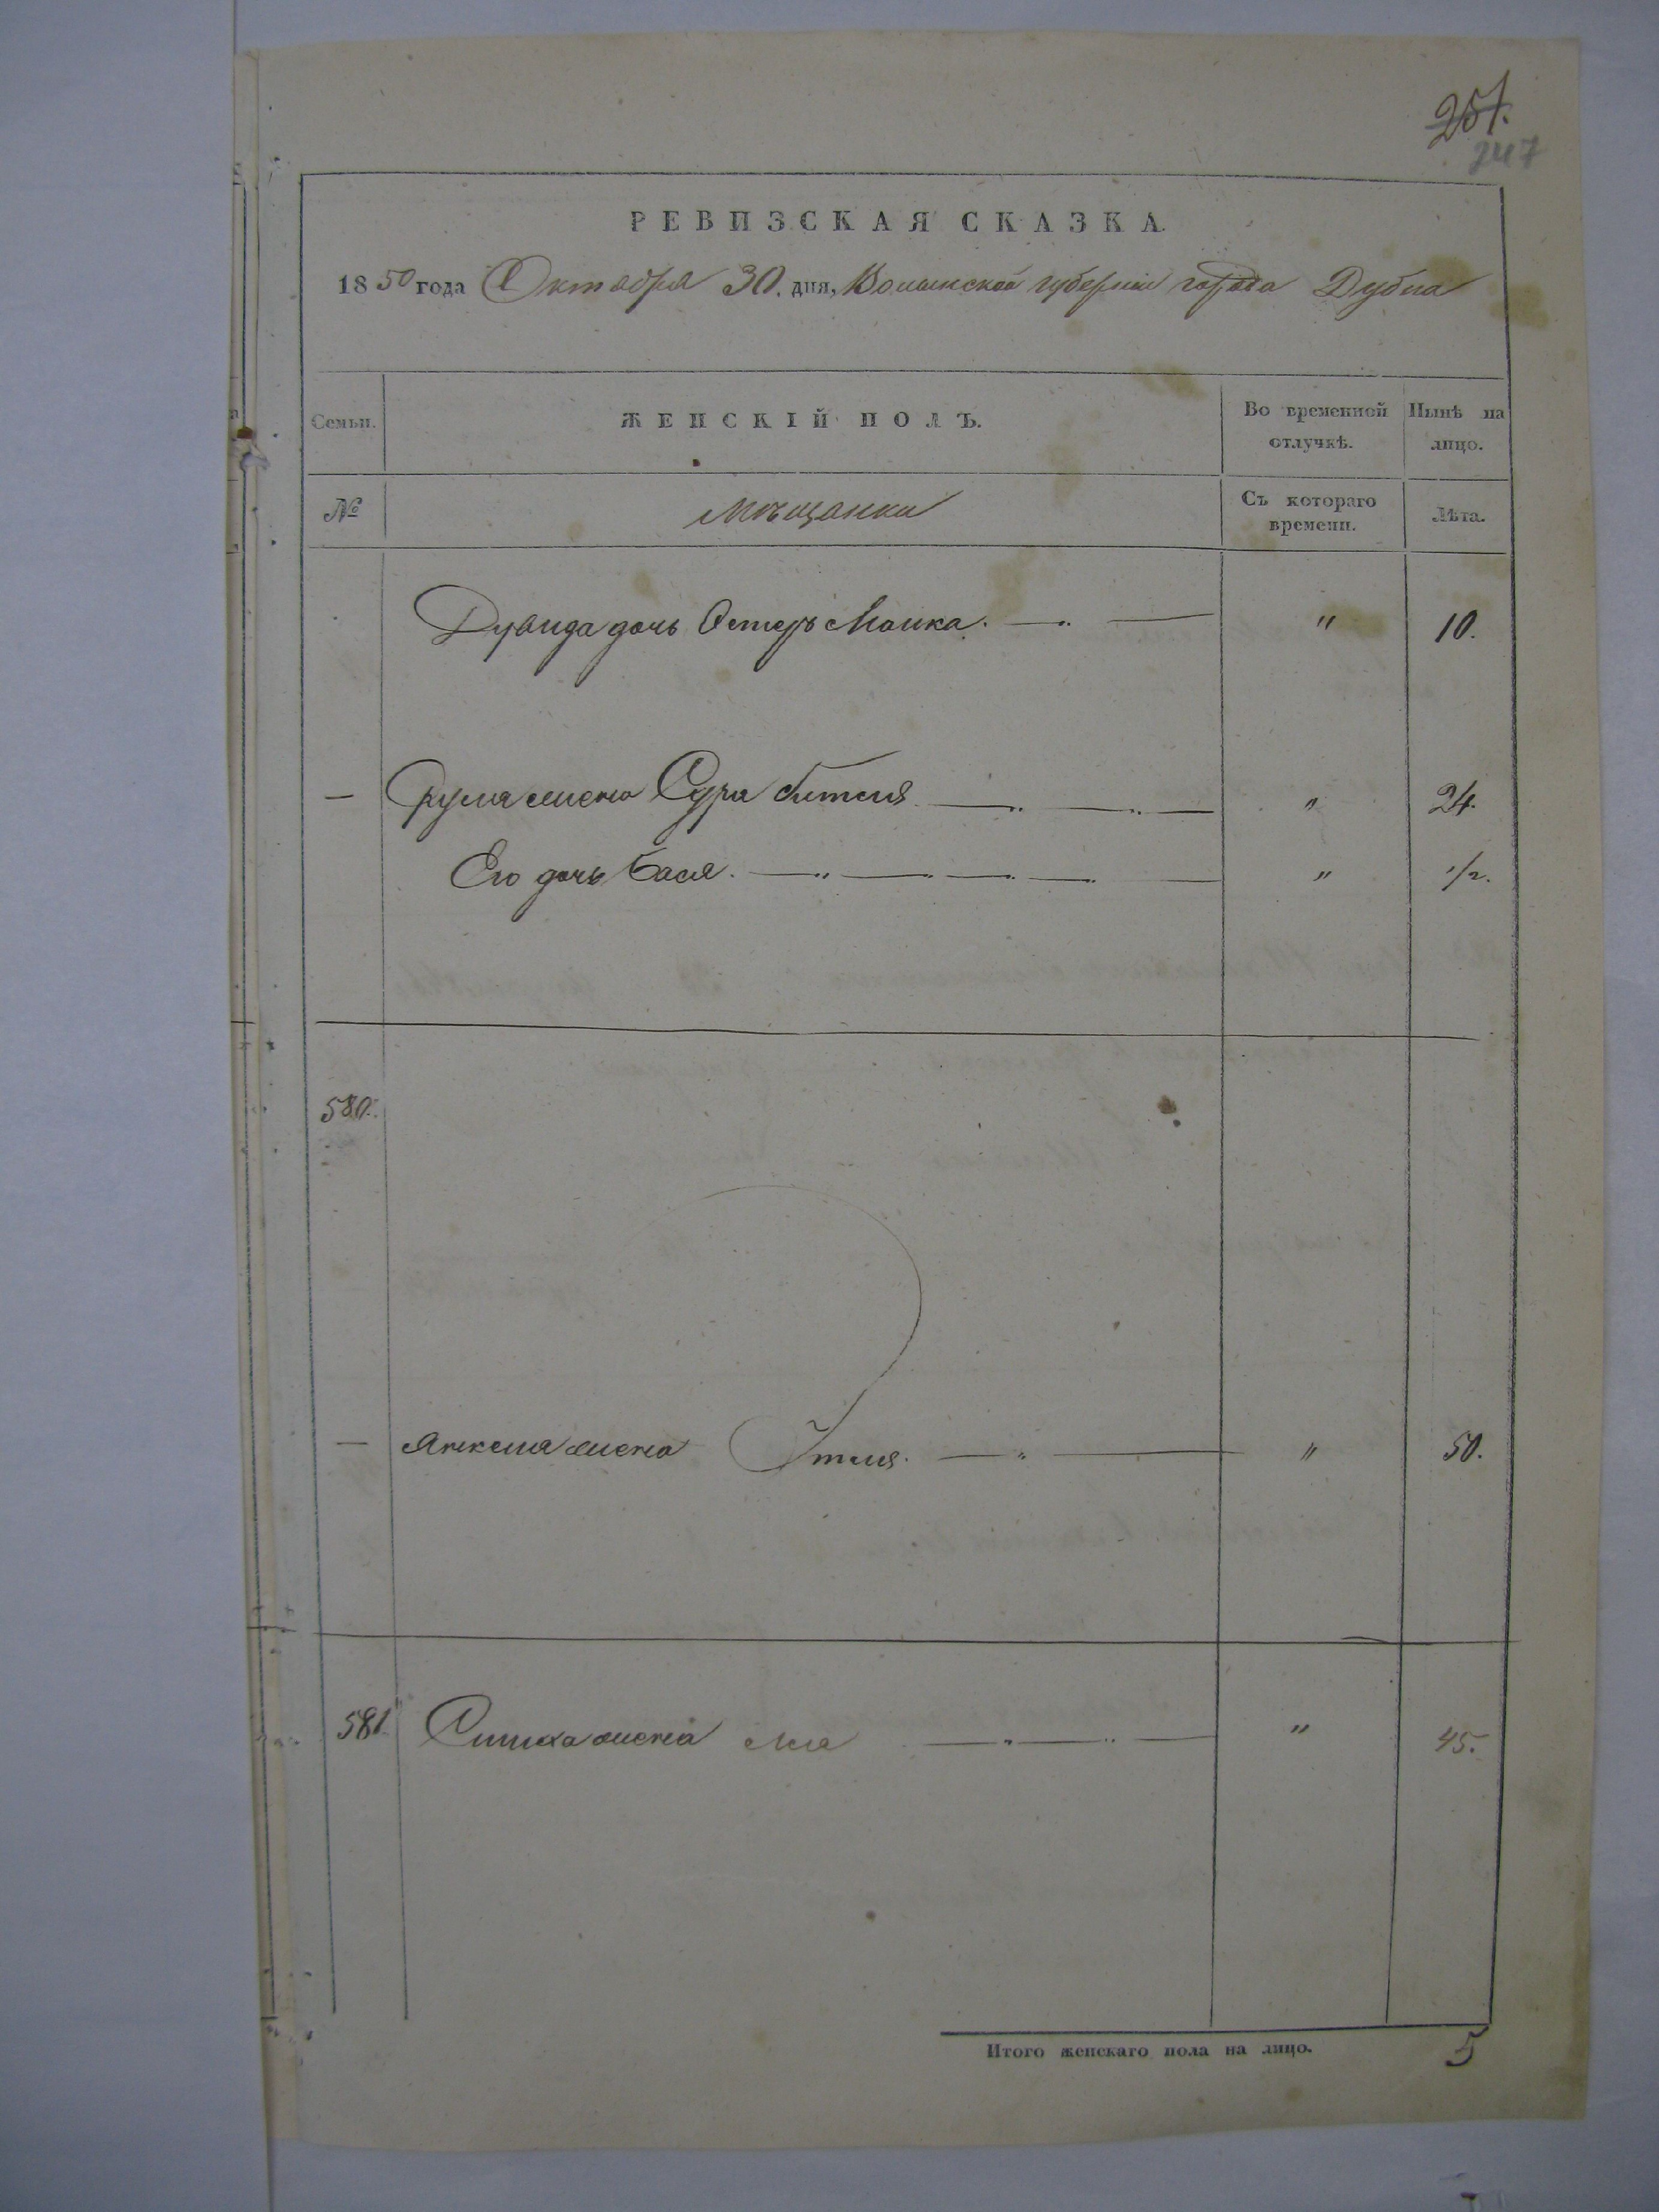 251.
247
РЕВИЗСКАЯ СКАЗКА.
1850 года Октября 30. дня, Волынской губернии города Дубна
Семьи. ЖЕНСКІЙ ПОЛЪ. Во временной отлучкѣ. Нынѣ на лицо.
№ Мѣщанки Съ котораго времени. Лѣта.
Дувида дочь Естеръ Малка. — „ — " 10.
— Сруля жена Сура — „ — „ — " 24.
Его дочь Бася. — „ — „ — „ — „ — " 1/2.
580.
— Янкеля жена Ителя. — „ — " 50.
581. Симха жена Лея — „ — „ — " 45.
Итого женскаго пола на лицо. 5